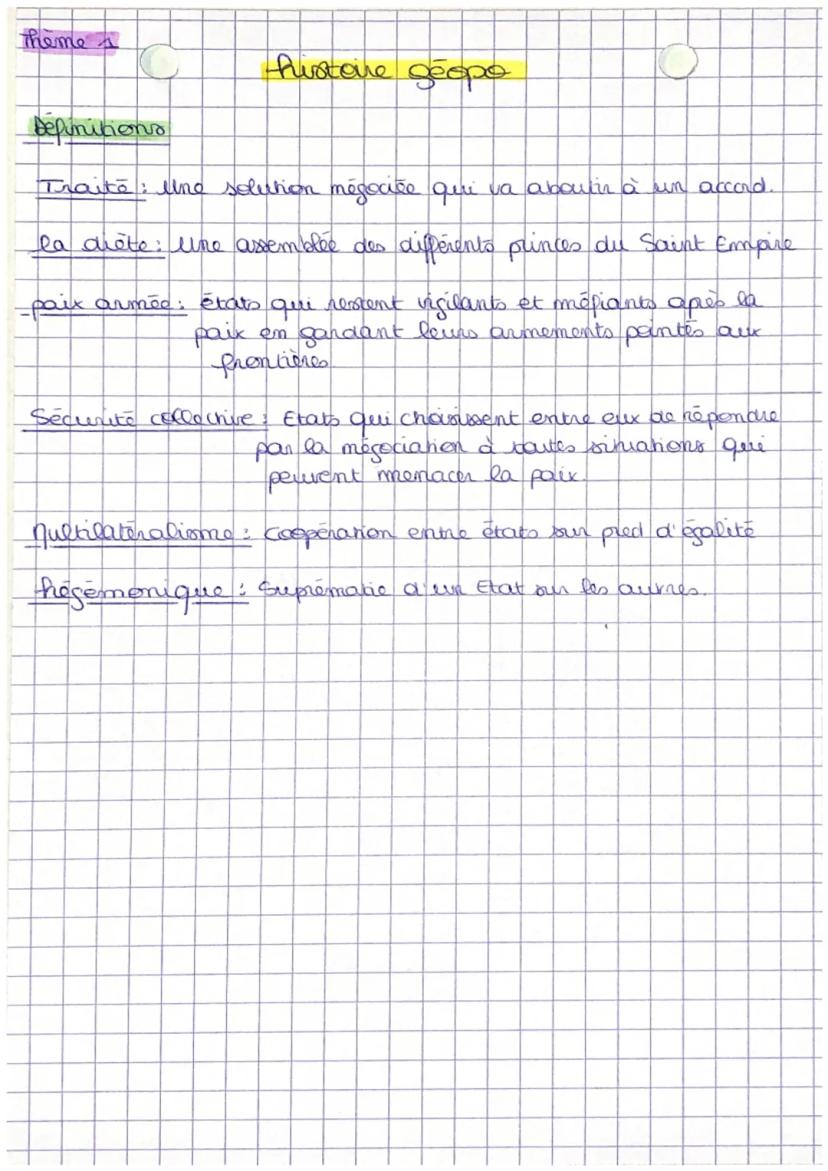 Thème 1
histoire géopo
Définitions
Traité : Une solution négociée qui va aboutir à un accord.
la diète : Une assemblée des différents princes du Saint Empire
paix armée : états qui restent vigilants et méfiants après la
paix en gardant leurs armements pointés aux
frontières
Sécurité collective : Etats qui choisissent entre eux de répondre
par la négociation à toutes situations qui
peuvent menacer la paix.
Multilatéralisme : Coopération entre états sur pied d'égalité
hégémonique : Suprématie d'un Etat sur les autres.